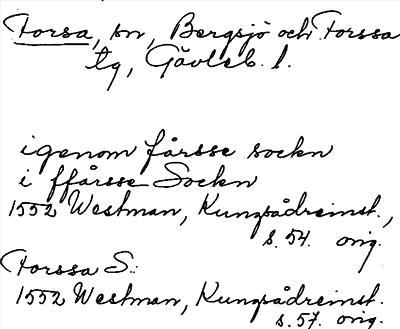 Forsa, sn, Bergsjö och Forssa
tg, Gävleb. l.
igenom fårsse sockn
i ffårsse Sockn
1552 Westman, Kungsådreinst.,
s. 54. orig.
Forssa S.:
1552 Westman, Kungsådreinst.
s. 57. orig.